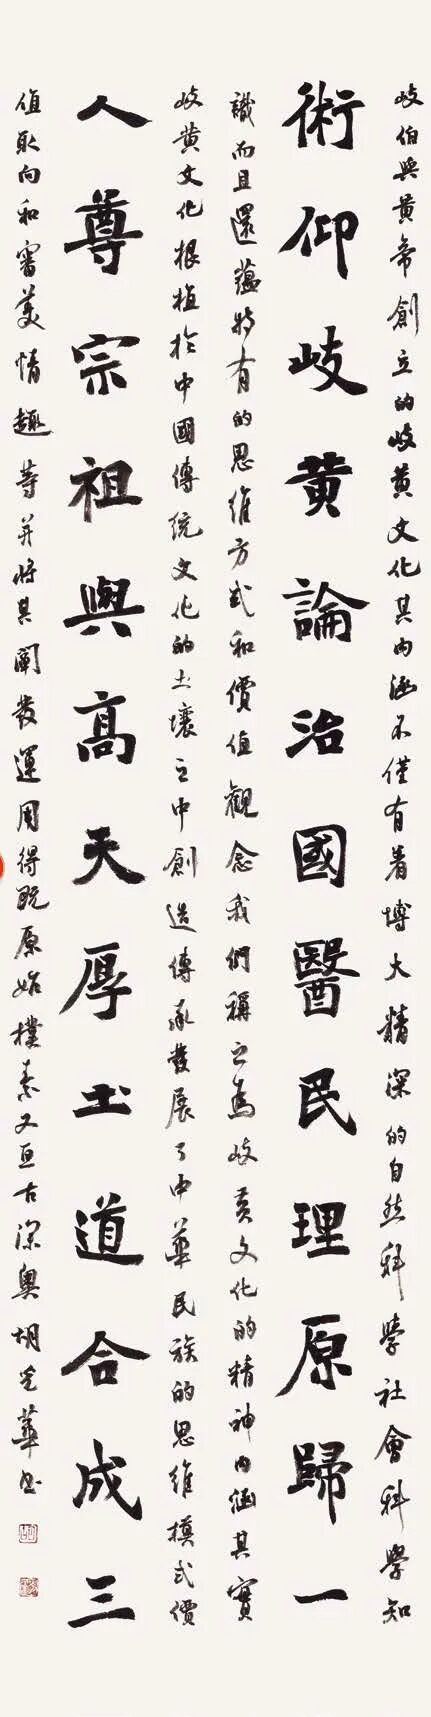 岐伯與黃帝創立的岐黃文化其內涵不僅有着博大精深的自然科學社會科學知
術仰岐黃論治國醫民理原歸一
識而且還蘊特有的思維方式和價值觀念我們稱之為岐黃文化的精神內涵其實
岐黃文化根植於中國傳統文化的土壤之中創造傳承發展了中華民族的思維模式價
人尊宗祖與高天厚土道合成三
值取向和審美情趣等并將其闡發運用得既原始樸素又亘古深奧胡 華書